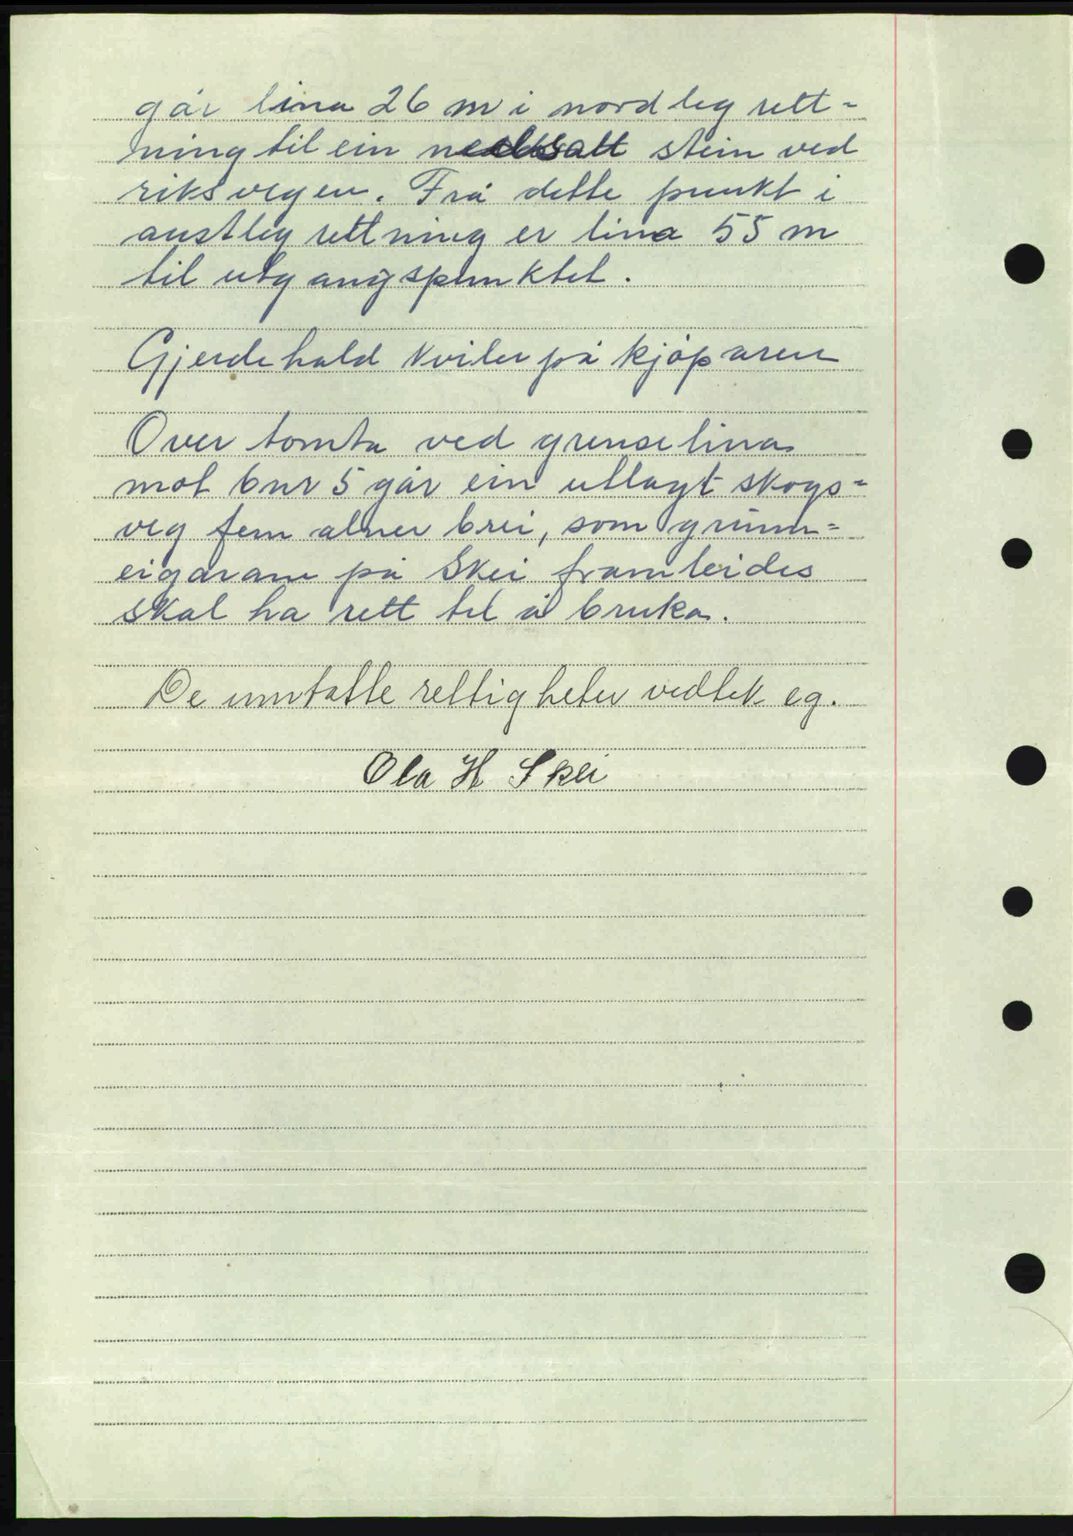 går lina 26 m i nordleg rett-
ning til ein nedsatt stein ved
riksvegen. Frå dette punkt i
austleg rettning er lina 55 m
til utgangspunktet.
Gjerdehald kviler på kjøparen
Over tomta ved grenselina
mot bnr 5 går ein utlagt skogs-
veg fem alner brei, som grunn-
eigarane på Skei framleides
skal ha rett til å bruka.
De umtatte rettigheter vedtek eg.
Ola H Skei